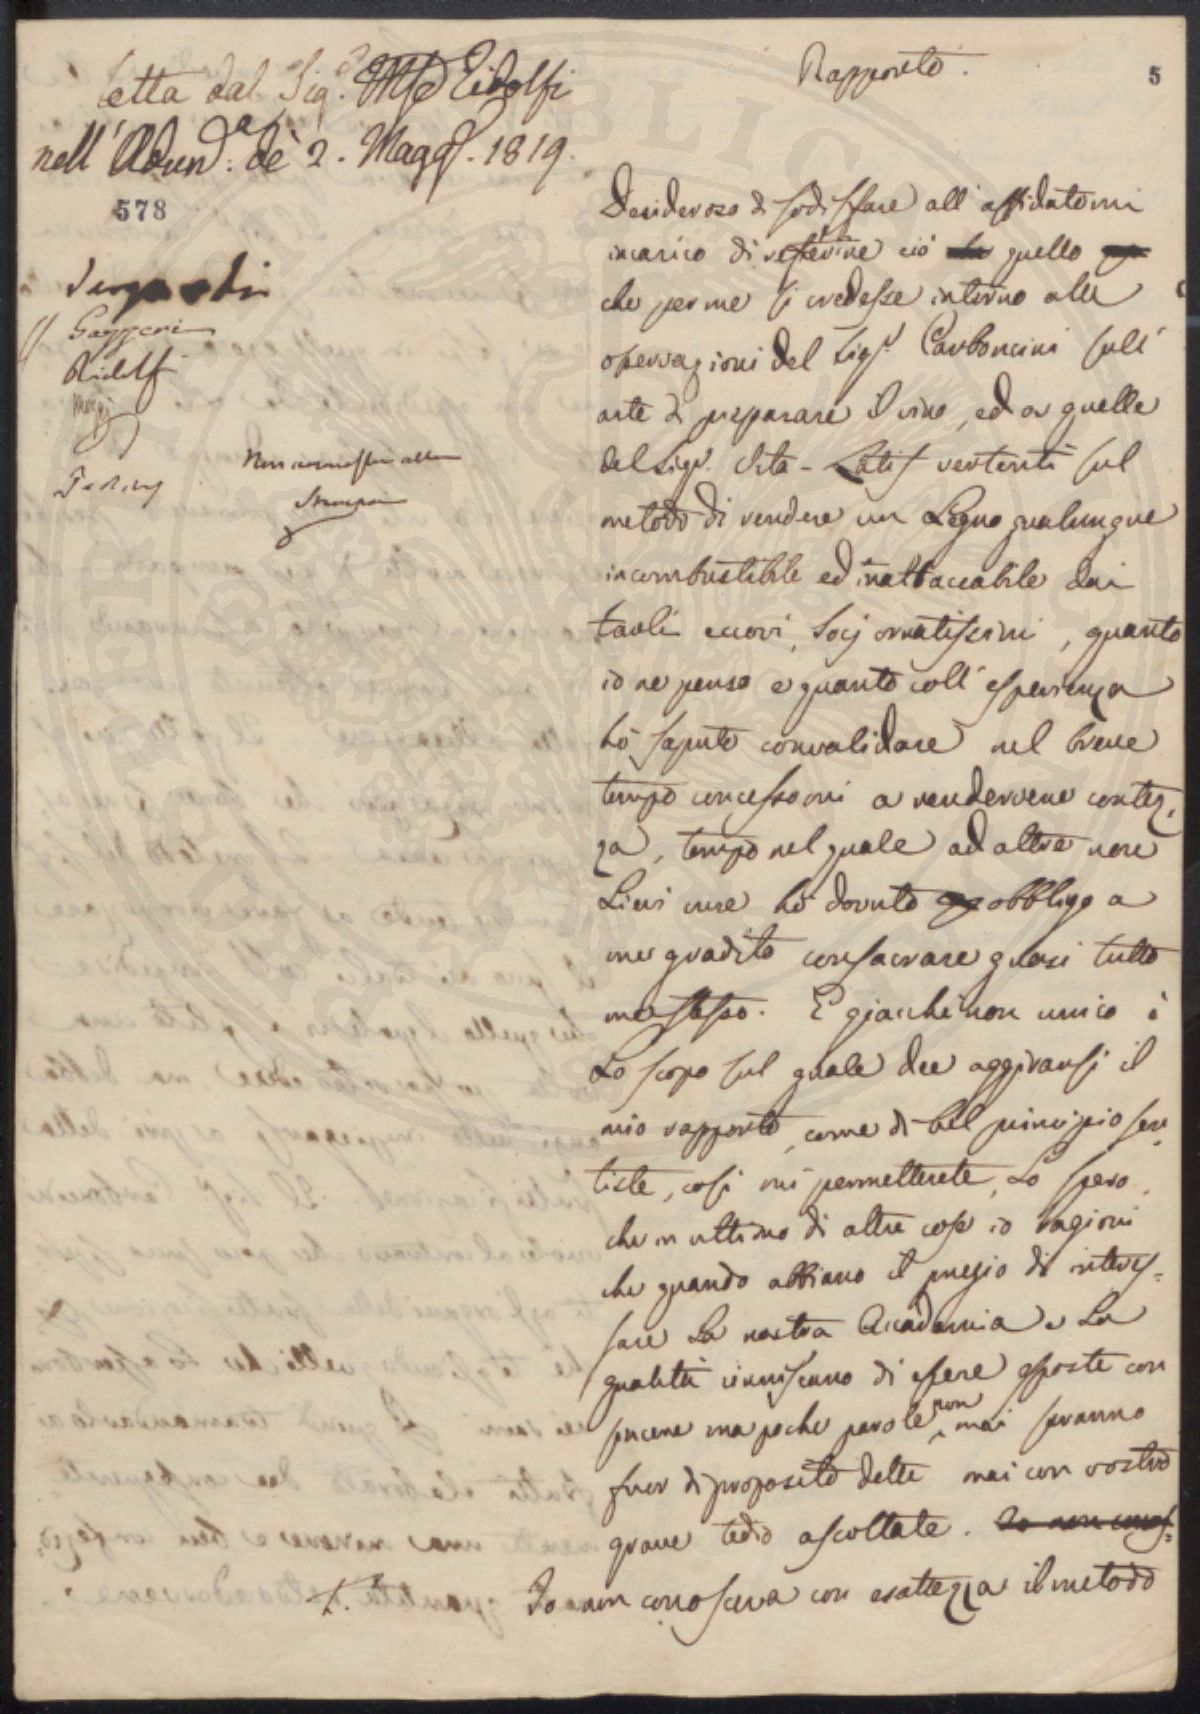 Letta dal Sig.e Mse Ridolfi
nell' Adun.a de 2. Magg. 1819.
578
Rapporto.
5
Gazzeri
Ridolfi
Non ammessa alla
Stampa
Desideroso di sodisfare all' affidatomi
incarico di riferirvi ciò quello
che per me si credesse intorno alle
osservazioni del Sigr. Carboncini sull'
arte di preparare il vino, ed a quelle
del Sigr. vertenti sul
metodo di rendere un Legno qualunque
incombustibile ed inattaccabile dai
tarli eccovi, Socj ornatissimi, quanto
io ne penso e quanto coll' esperienza
hò saputo convalidare nel breve
tempo concessomi a rendervene contez-
za, tempo nel quale ad altre non
Lievi cure hò dovuto obbligo a
me gradito consacrare quasi tutto
me stesso. E giacchè non unico è
Lo scopo sul quale dee aggirarsi il
mio rapporto, come di bel principio sen-
tiste, così mi permetterete, Lo spero,
che in ultimo di altre cose io ragioni
che quando abbiano il pregio di interes-
sare La nostra Accademia e La
qualità riuniscano di essere esposte con
sincere ma poche parole non mai saranno
fuor di proposito dette mai con vostro
grave tedio ascoltate. Io non conos-
Io non conosceva con esattezza il metodo